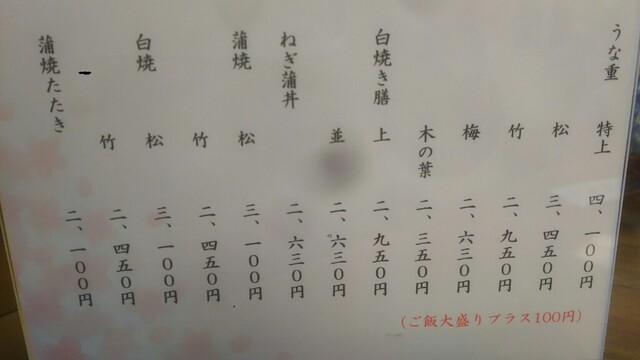 うな重 特上 四、一〇〇円
松 三、四五〇円
竹 二、九五〇円
梅 二、六三〇円
木の葉 二、三五〇円
白焼き膳 上 二、九五〇円
並 二、六三〇円
ねぎ蒲丼 二、六三〇円
蒲焼 松 三、一〇〇円
竹 二、四五〇円
白焼 松 三、一〇〇円
竹 二、四五〇円
蒲焼たたき 二、一〇〇円
(ご飯大盛りプラス100円)